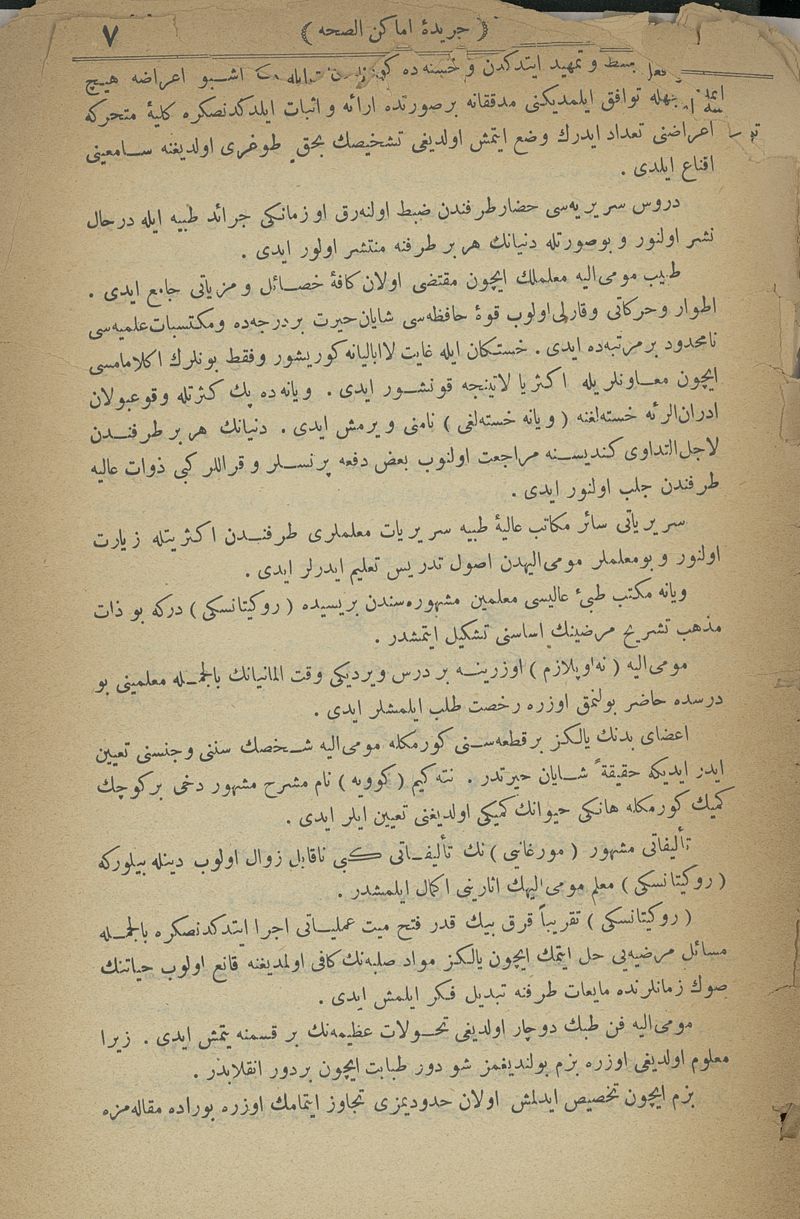 ( جريدۀ اماكن الصحه )
٧
بسط و تمهيد ايتدكدن و خسته‌ده اشــبو اعراضه هيچ
توافق ايلمديكنى مدققانه برصورتده ارائه و اثبات ايلدكدنصكره كليۀ متحركه
اعراضنى تعداد ايدرك وضع ايتمش اولديغى تشخيصك بحق طوغرى اولديغنه ســامعينى
اقناع ايلدى .
دروس سريريه‌سى حضار طرفندن ضبط اولنه‌رق او زمانكى جرائد طبيه ايله درحال
نشر اولنور و بوصورتله دنيانك هر بر طرفنه منتشر اولور ايدى .
طبيب مومى‌اليه معلملك ايچون مقتضى اولان كافۀ خصــائل و مزياتى جامع ايدى .
اطوار وحركاتى وقارلى اولوب قوۀ حافظه‌سى شايان حيرت بردرجه‌ده ومكتسبات علميه‌سى
نامحدود برمرتبه‌ده ايدى . خستكان ايله غايت لاابالیانه كوريشور وفقط بونلرك اكلامامسى
ايچون معــاونلريله اكثريا لاتينجه قونشــور ايدى . ويانه‌ده پك كثرتله وقوعبولان
ادران‌الرئه خسته‌لغنه ( ويانه خسته‌لغى ) نامنى ويرمش ايدى . دنيانك هر بر طرفنــدن
لاجل‌التداوى كنديســنه مراجعت اولنوب بعض دفعه پرنســلر و قراللر كبى ذوات عاليه
طرفندن جلب اولنور ايدى .
سريرياتى سائر مكاتب عاليۀ طبيه سريريات معلملرى طرفنــدن اكثريتله زيارت
اولنور و بومعلملر مومى‌اليهدن اصول تدريس تعليم ايدرلر ايدى .
ويانه مكتب طبئ عاليسى معلمين مشهوره‌سندن بريسيده ( روكيتانسكى ) دركه بو ذات
مذهب تشريح مرضينك اساسنى تشكيل ايتمشدر .
مومى‌اليه ( نه‌اوپلازم ) اوزرينــه بر درس ويرديكى وقت المانيانك بالجمــله معلمينى بو
درسده حاضر بولنمق اوزره رخصت طلب ايلمشلر ايدى .
اعضاى بدنك يالكز برقطعه‌ســنى كورمكله مومى‌اليه شــخصك سننى وجنسنى تعيين
ايدر ايديكه حقيقةً شــايان حيرتدر . نته‌كيم ( كوويه ) نام مشرح مشهور دخى بركوچك
كميك كورمكله هانكى حيوانك كميكى اولديغنى تعيين ايلر ايدى .
تأليفاتى مشهور ( مورغانيى ) نك تأليفــاتى كبى ناقابل زوال اولوب دينله بيلوركه
( روكيتانسكى ) معلم مومى‌اليهك اثارينى اكمال ايلمشدر .
( روكيتانسكى ) تقريباً قرق بيك قدر فتح ميت عملياتى اجرا ايتدكدنصكره بالجمــله
مسائل مرضيه‌يى حل ايتمك ايچون يالكز مواد صلبه‌نك كافى اولمديغنه قانع اولوب حياتنك
صوك زمانلرنده مايعات طرفنه تبديل فكر ايلمش ايدى .
مومى‌اليه فن طبك دوچار اولديغى تحــولات عظيمه‌نك بر قسمنه يتمش ايدى . زيرا
معلوم اولديغى اوزره بزم بولنديغمز شو دور طبابت ايچون بردور انقلابدر .
بزم ايچون تخصيص ايدلمش اولان حدوديمزى تجاوز ايتمامك اوزره بوراده مقاله‌مزه